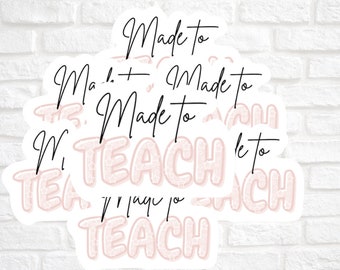 Made to
Made to Made to
TEACH
Made to
TEACH
Made to
TEACH TEACH
Made to
TEACH